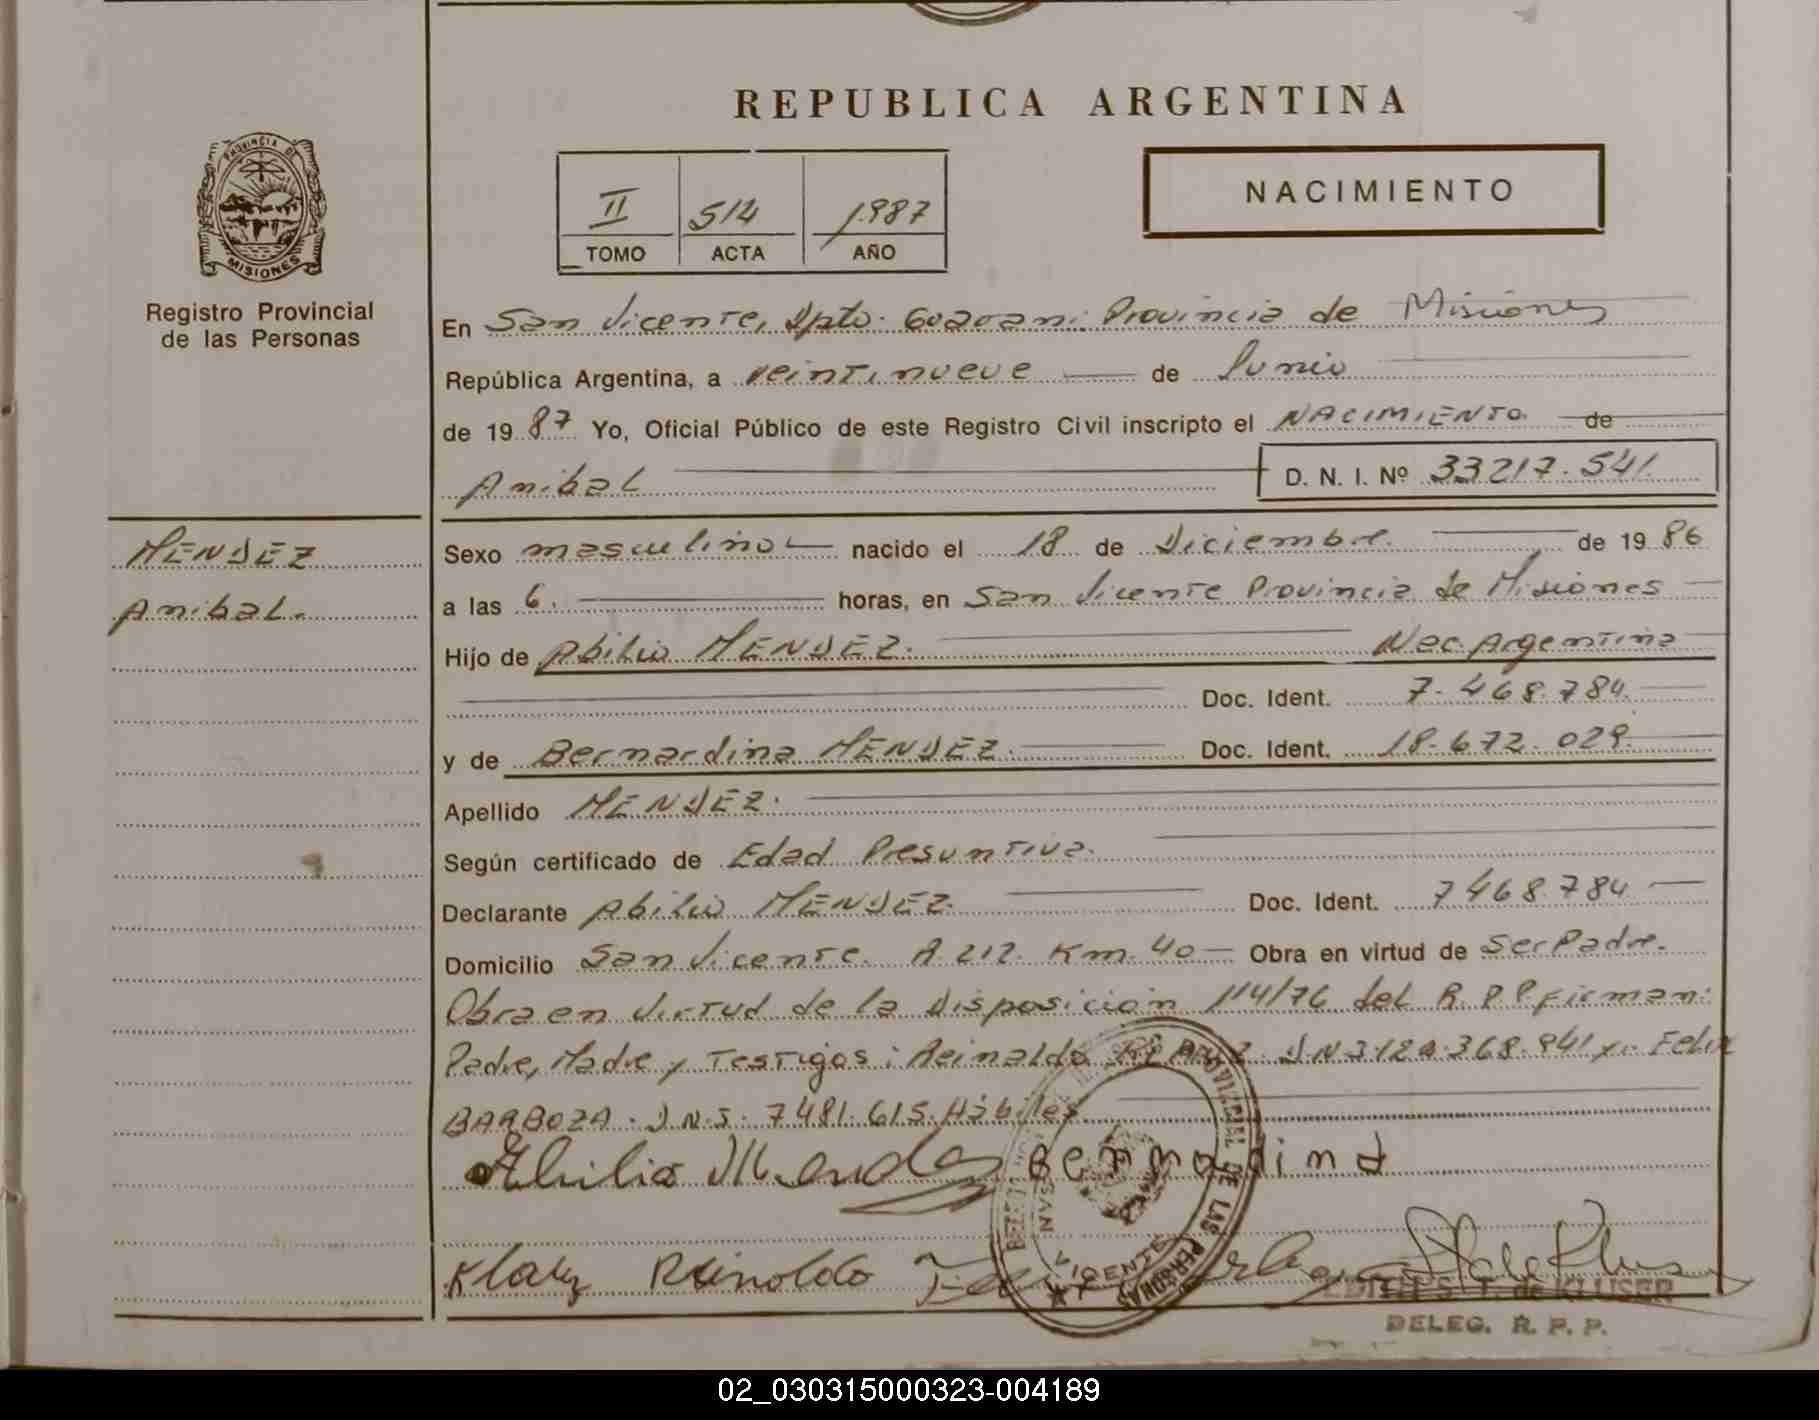 REPUBLICA ARGENTINA
PROVINCIA DE
MISIONES
Registro Provincial
de las Personas
II 514 1987
TOMO ACTA AÑO
NACIMIENTO
En San Vicente, Dpto. Guarani Provincia de Misiones
República Argentina, a veintinueve de Junio
de 1987 Yo, Oficial Público de este Registro Civil inscripto el NACIMIENTO de
Anibal D. N. I. Nº 33217.541
MENDEZ
Anibal.
Sexo masculino nacido el 18 de Diciembre de 1986
a las 6. horas, en San Vicente Provincia de Misiones
Hijo de Abilio MENDEZ. Nac. Argentina
Doc. Ident. 7.468.784.
y de Bernardina MENDEZ. Doc. Ident. 18.672.029.
Apellido MENDEZ.
Según certificado de Edad Presuntiva.
Declarante Abilio MENDEZ. Doc. Ident. 7468.784
Domicilio San Vicente. R. 212. Km. 40 Obra en virtud de Ser Padre.
Obra en virtud de la Disposición 114/76 del R.P.P. Firman:
Padre, Madre y Testigos: Reinaldo y Felix
BARBOZA. D.N.I. 7481.615. Hábiles.
Abilio Mendez Bernardina
Klatz Reinoldo
PROVINCIAL DE LAS PERSONAS
SAN VICENTE
EDITH S. T. de KLUSER
DELEG. R. P. P.
02_030315000323-004189